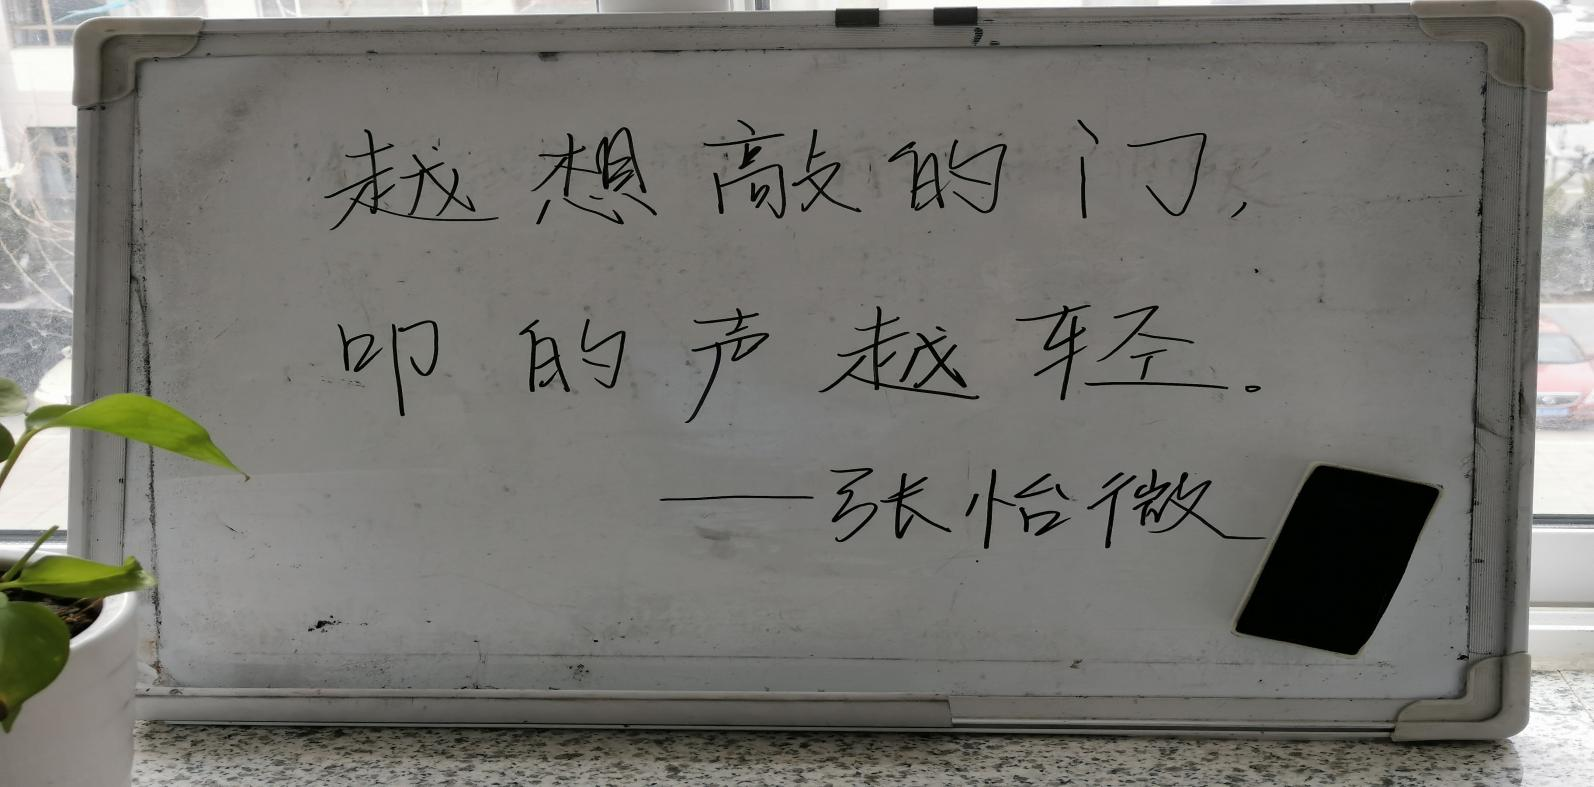 越想敲的门,
叩的声越轻。
——张怡微